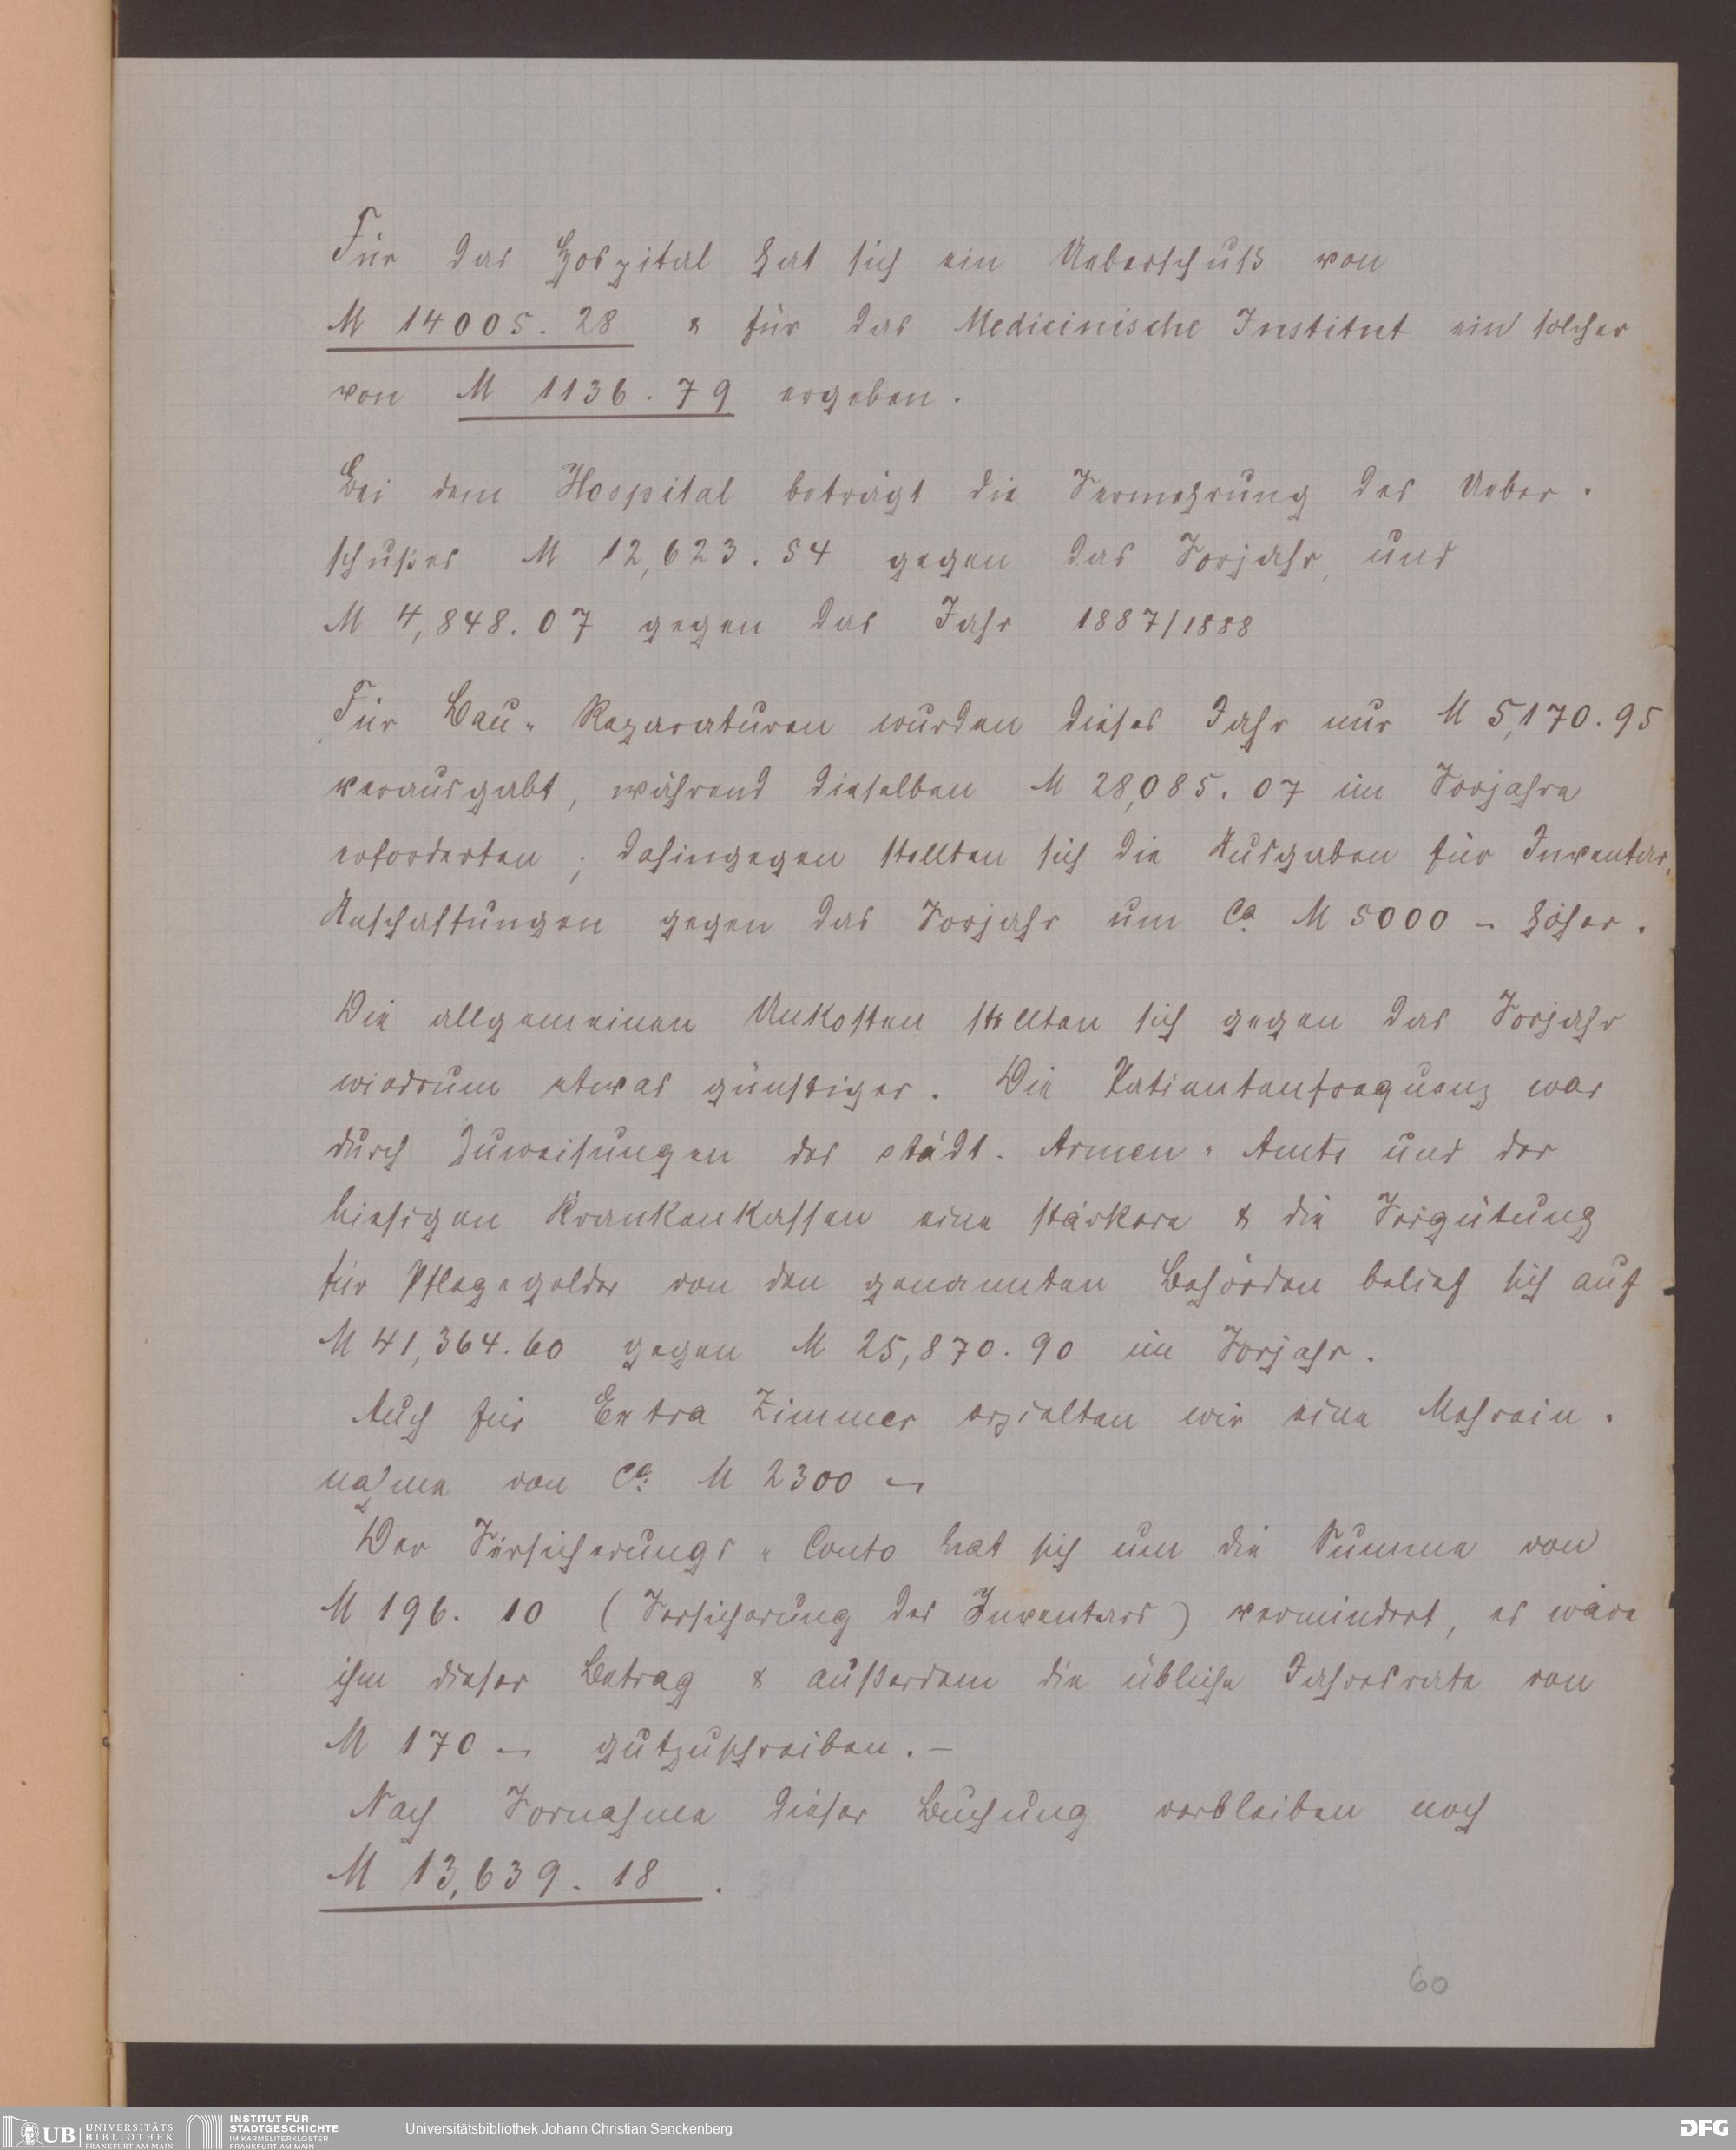 Für das Hospital hat sich ein Ueberschuß von
M 14005. 28 & für das Medicinische Institut ein solcher
von M 1136. 79 ergeben.
Bei dem Hospital beträgt die Vermehrung des Ueber-
schußes M 12,623. 54 gegen das Vorjahr, und
M 4,848. 07 gegen das Jahr 1887/1888
Für Bau- Reparaturen wurden dieses Jahr nur M 5,170. 95
verausgabt, während dieselben M 28,085. 07 im Vorjahre
erforderten; dahingegen stellten sich die Ausgaben für Inventar,
Anschaffungen gegen das Vorjahr um Ca M 5000 - höher.
Die allgemeinen Unkosten stellten sich gegen das Vorjahr
wiedrum etwas günstiger. Die Patientenfrequenz war
durch Zuweisungen des städt. Armen- Amts und der
hiesigen Krankenkassen eine stärkere & die Vergütung
für Pflegegelder von den genannten Behörden belief sich auf
M 41,364. 60 gegen M 25,870. 90 im Vorjahr.
Auch für Extra Zimmer erzielten wir eine Mehrein-
nahme von Ca M 2300 -
Der Versicherungs- Conto hat sich um die Summe von
M 196. 10 (Versicherung des Inventars) vermindert, es wäre
ihm dieser Betrag & außerdem die übliche Jahresrate von
M 170 - gutzuschreiben. -
Nach Vornahme dieser Buchung verbleiben noch
M 13,639. 18.
60
UB UNIVERSITÄTS
BIBLIOTHEK
FRANKFURT AM MAIN
INSTITUT FÜR
STADTGESCHICHTE
IM KARMELITERKLOSTER
FRANKFURT AM MAIN
Universitätsbibliothek Johann Christian Senckenberg
DFG